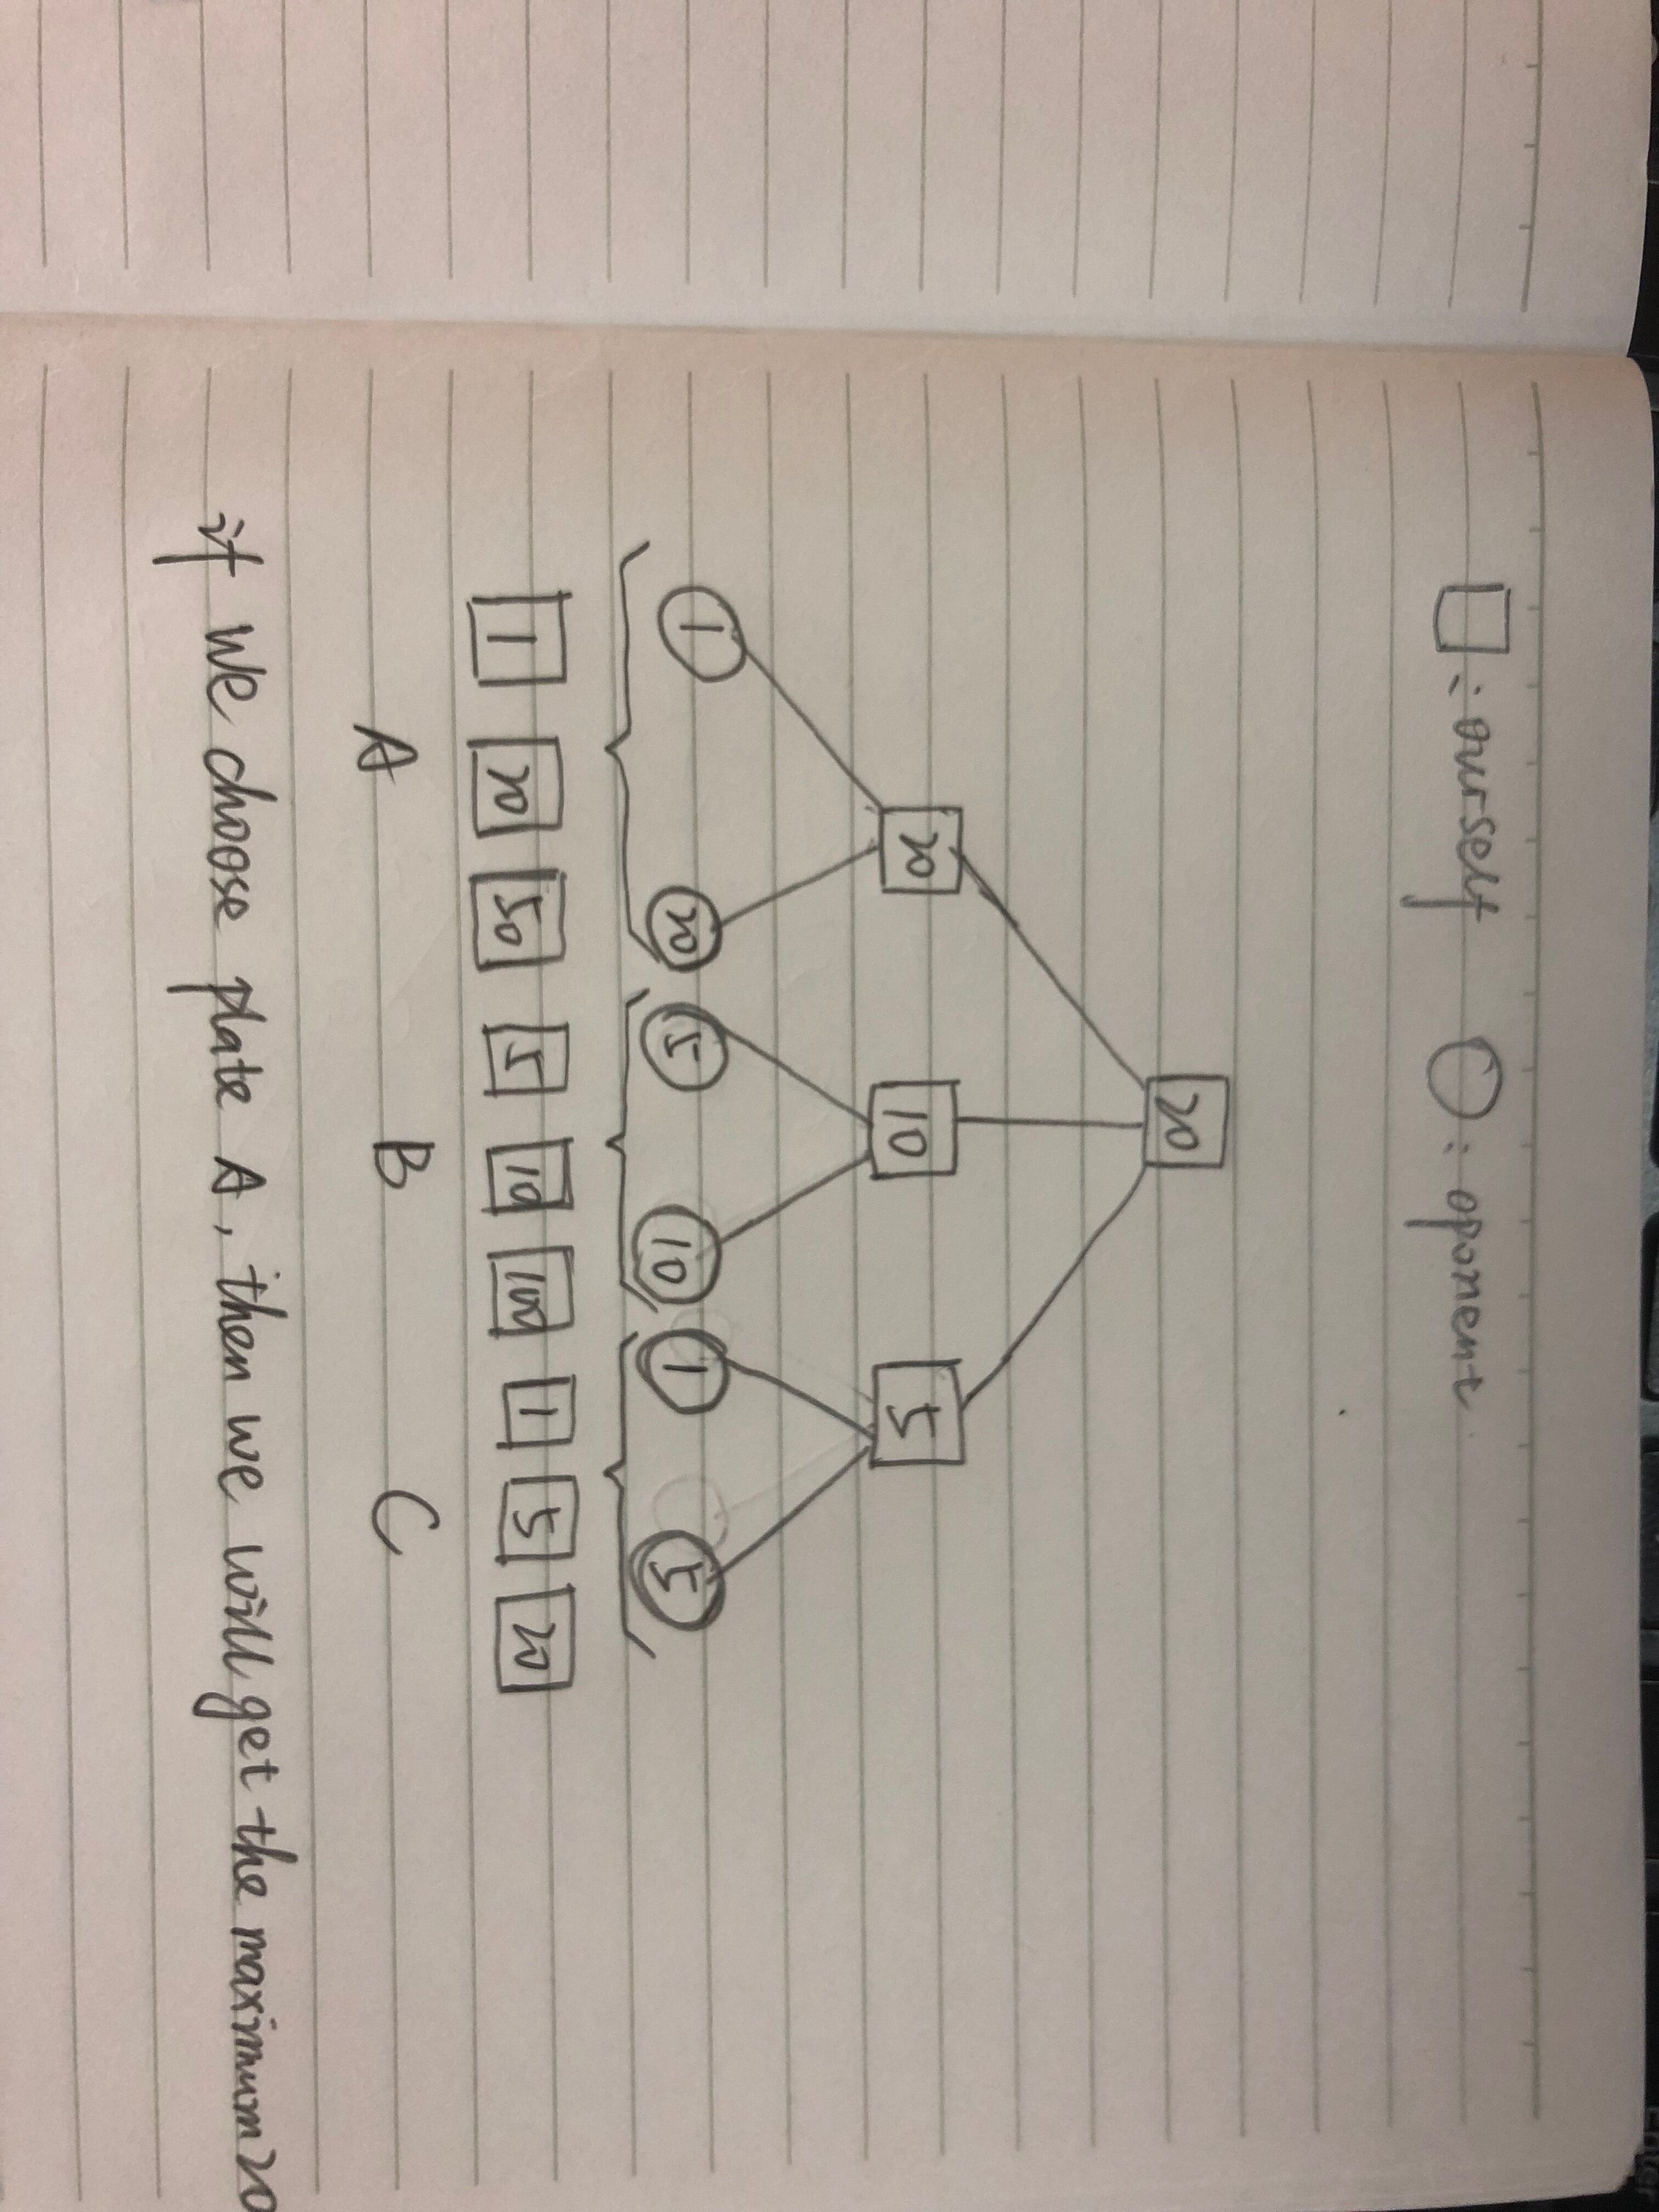 □: ourself ○: oponent
20
20 10 5
1 20 5 10 1 5
1 20 50 5 10 100 1 5 20
A B C
if we choose plate A, then we will get the maximum 20